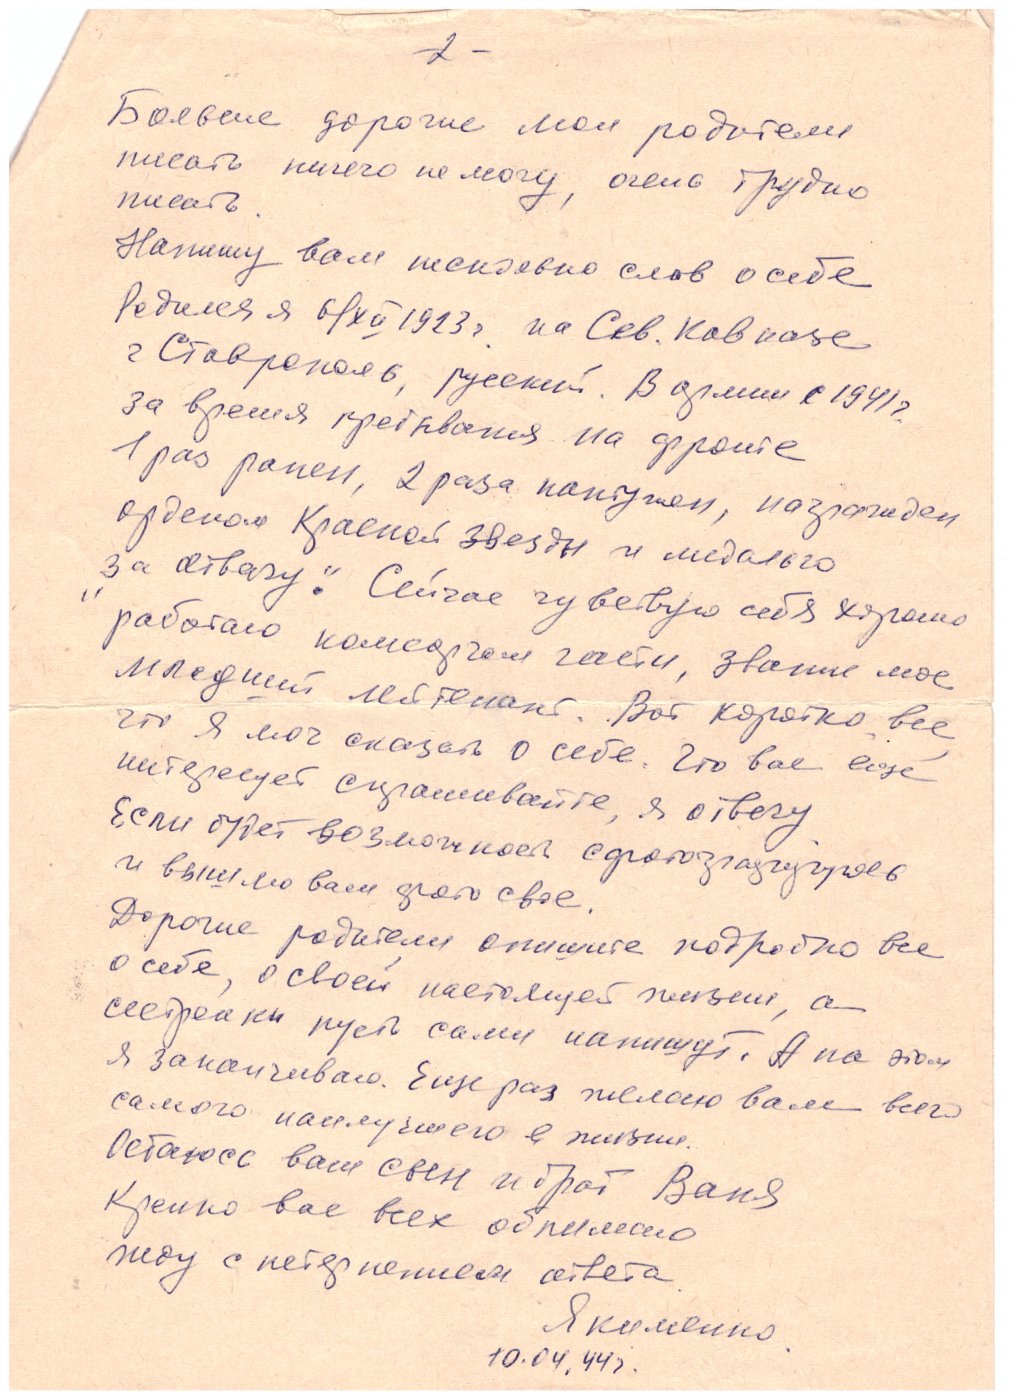 -2-
Больше дорогие мои родители
писать ничего не могу, очень трудно
писать.
Напишу вам несколько слов о себе
Родился я 6/XII 1923 г. на Сев. Кавказе
г Ставрополь, русский. В армии с 1941 г.
за время пребывания на фронте
1 раз ранен, 2 раза контужен, награжден
орденом Красной Звезды и медалью
"За отвагу". Сейчас чувствую себя хорошо
работаю комсоргом части, звание мое
младший лейтенант. Вот коротко все,
что я мог сказать о себе. Что вас ещё
интересует спрашивайте, я отвечу
Если будет возможность сфотографируюсь
и вышлю вам фото свое.
Дорогие родители опишите подробно все
о себе, о своей настоящей жизни, а
сестренки пусть сами напишут. А на этом
я заканчиваю. Еще раз желаю вам всего
самого наилучшего в жизни.
Остаюсь ваш сын и брат Ваня
Крепко вас всех обнимаю
жду с нетерпением ответа
Якименко.
10.04.44 г.